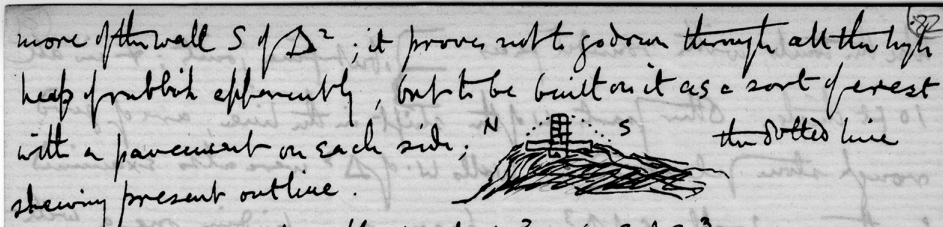 82
more of the wall S of Δ²; it proves not to go down through all the high
heap of rubbish apparently, but to be built on it as a sort of crest
with a pavement on each side; N S the dotted line
shewing present outline.